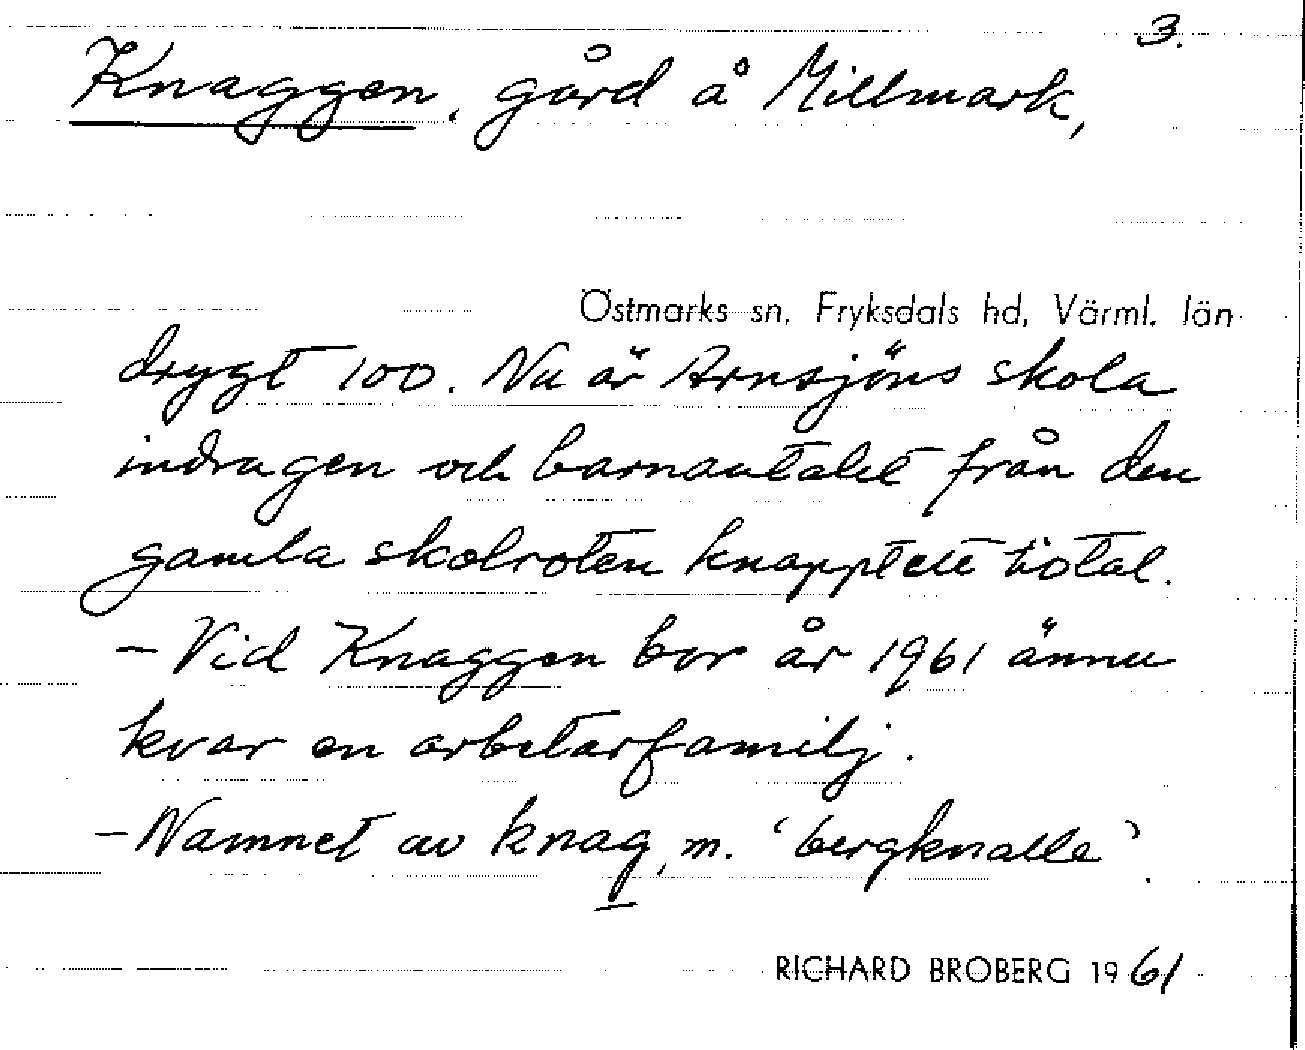 3.
Knaggen, gård å Millmark,
Östmarks sn, Fryksdals hd, Värml. län
drygt 100. Nu är Arnsjöns skola
indragen och barnantalet från den
gamla skolroten knappt ett tiotal.
- Vid Knaggen bor år 1961 ännu
kvar en arbetarfamilj.
- Namnet av knag, m. 'bergknalle'.
RICHARD BROBERG 1961